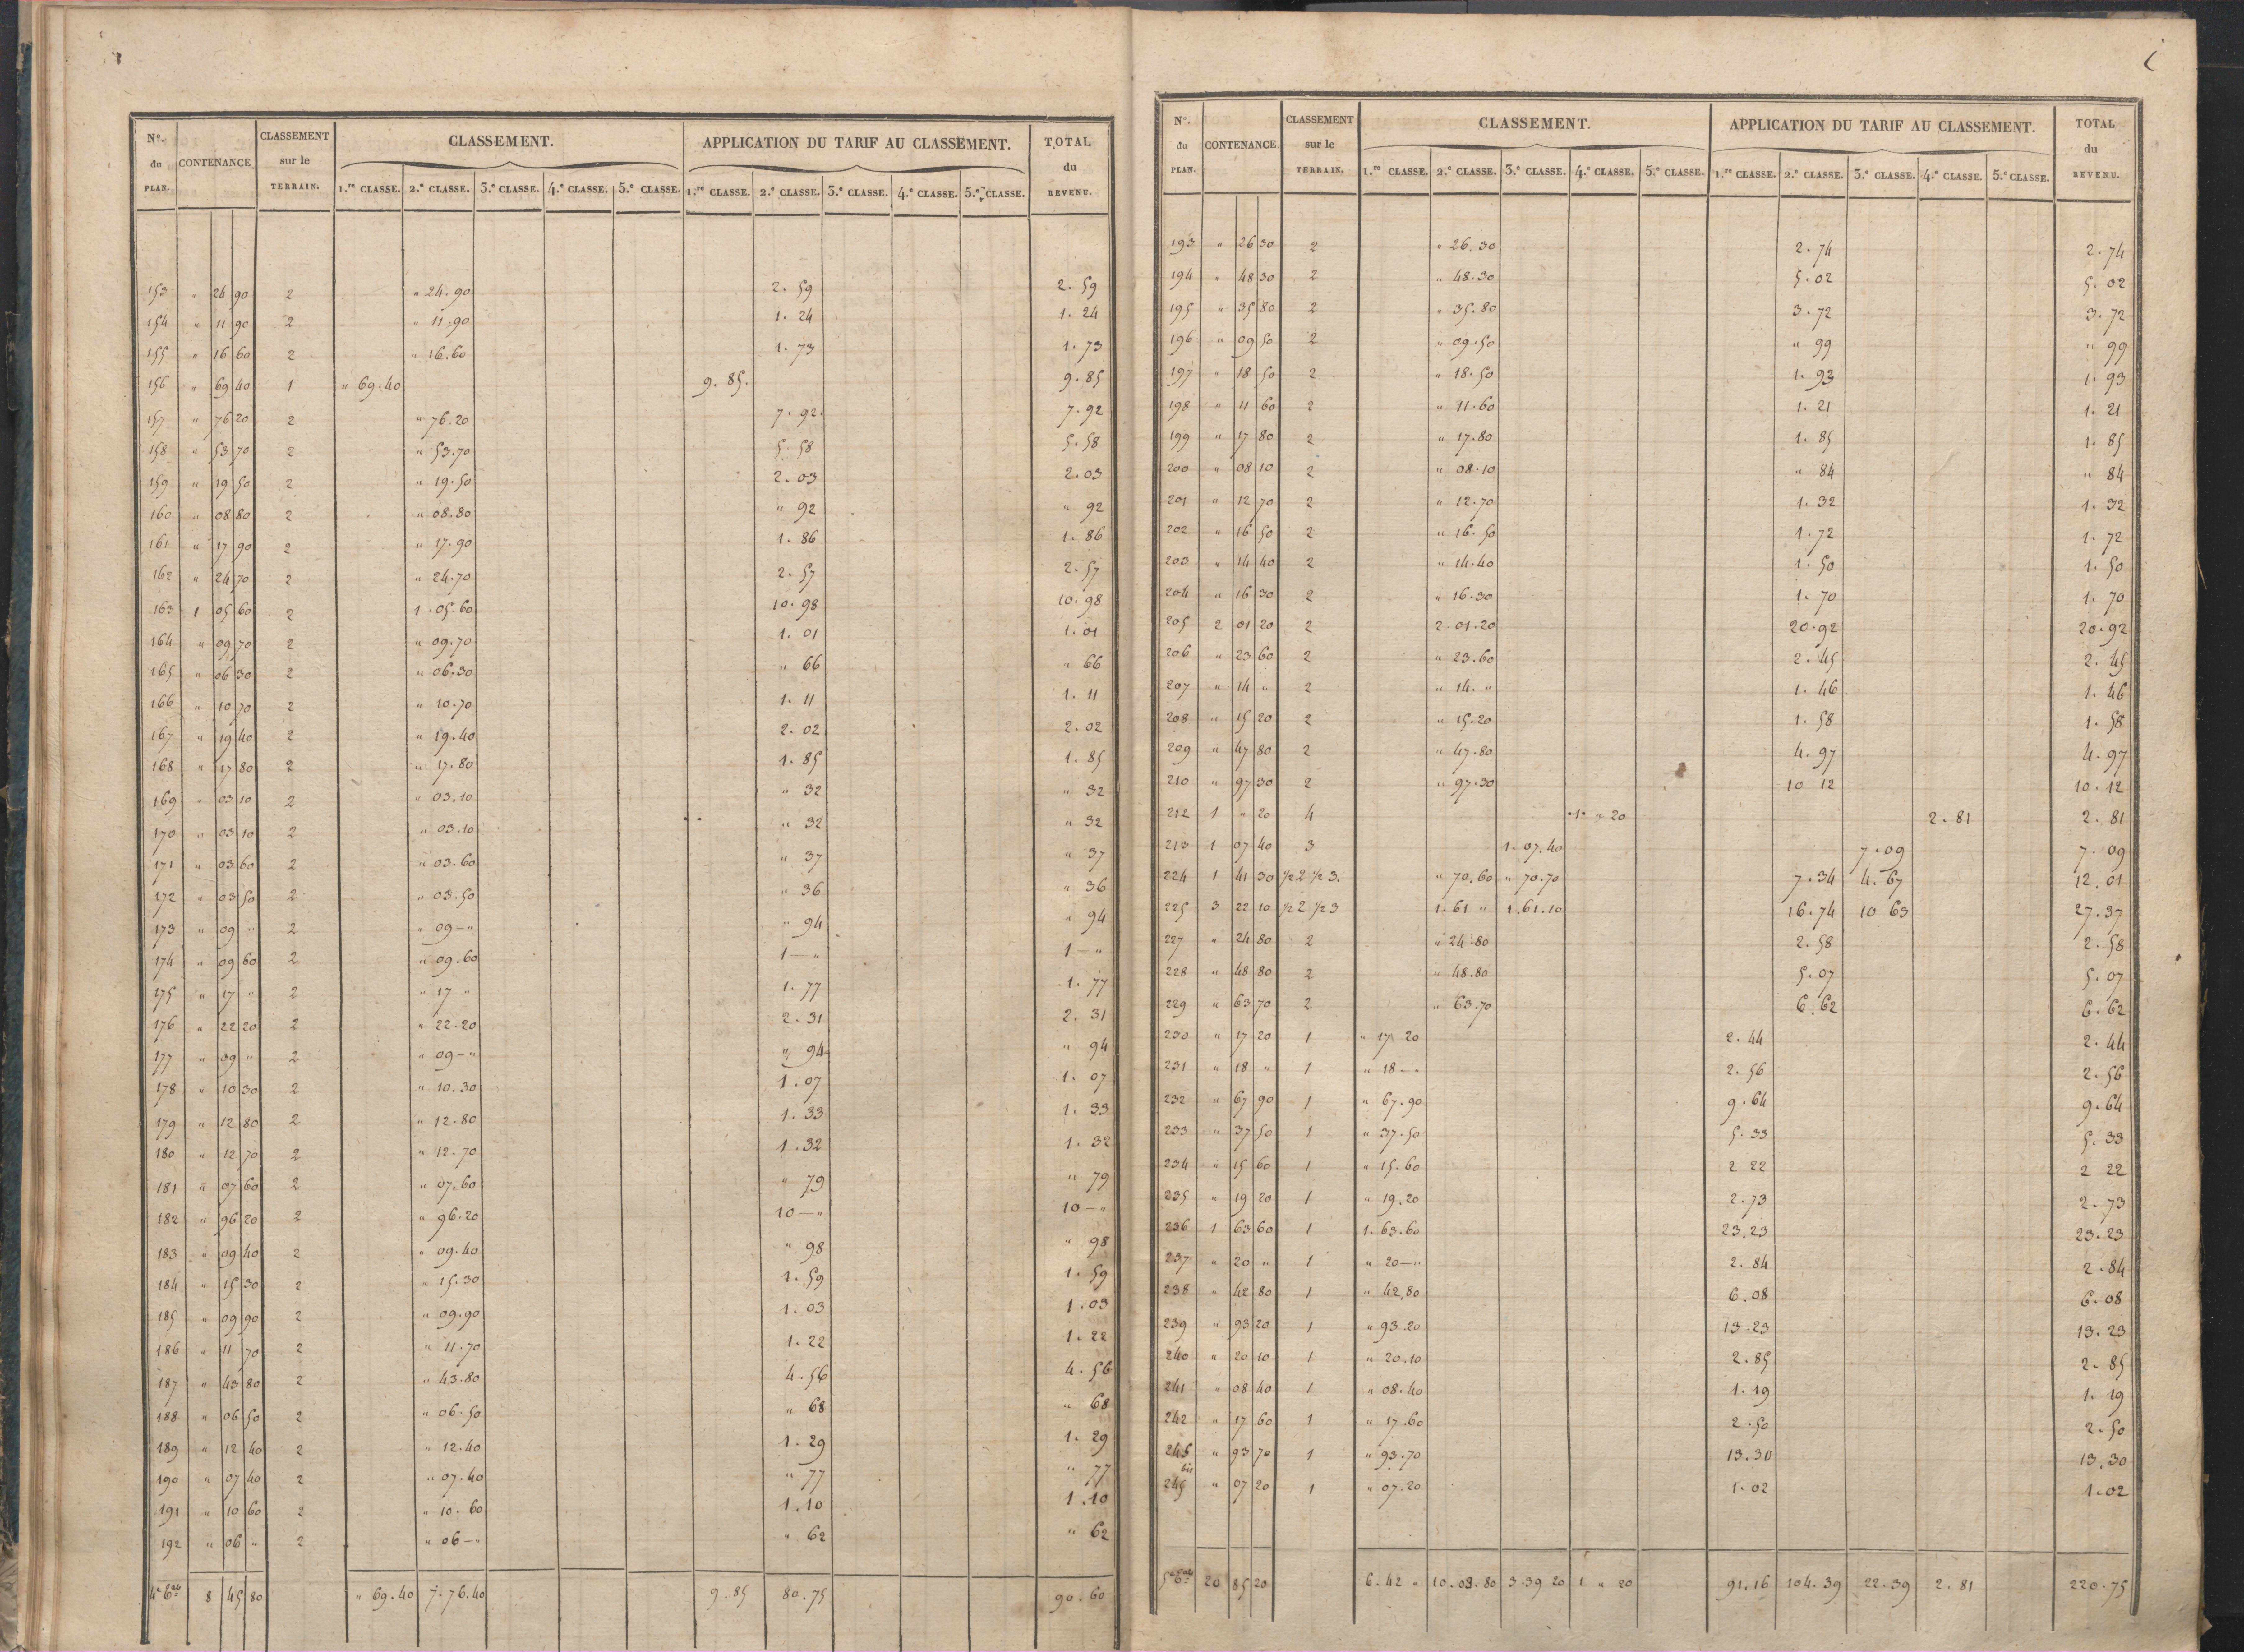 N.° du PLAN. CONTENANCE. CLASSEMENT sur le TERRAIN. CLASSEMENT. APPLICATION DU TARIF AU CLASSEMENT. TOTAL du REVENU.
1.re CLASSE. 2.e CLASSE. 3.e CLASSE. 4.e CLASSE. 5.e CLASSE. 1.re CLASSE. 2.e CLASSE. 3.e CLASSE. 4.e CLASSE. 5.e CLASSE.
153 " 24 90 2 " 24.90 2.59 2.59
154 " 11 90 2 " 11.90 1.24 1.24
155 " 16 60 2 " 16.60 1.73 1.73
156 " 69 40 1 " 69.40 9.85. 9.85
157 " 76 20 2 " 76.20 7.92. 7.92
158 " 53 70 2 " 53.70 5.58 5.58
159 " 19 50 2 " 19.50 2.03 2.03
160 " 08 80 2 " 08.80 " 92 " 92
161 " 17 90 2 " 17.90 1.86 1.86
162 " 24 70 2 " 24.70 2.57 2.57
163 1 05 60 2 1.05.60 10.98 10.98
164 " 09 70 2 " 09.70 1.01 1.01
165 " 06 30 2 " 06.30 " 66 " 66
166 " 10 70 2 " 10.70 1.11 1.11
167 " 19 40 2 " 19.40 2.02 2.02
168 " 17 80 2 " 17.80 1.85 1.85
169 " 03 10 2 " 03.10 " 32 " 32
170 " 03 10 2 " 03.10 " 32 " 32
171 " 03 60 2 " 03.60 " 37 " 37
172 " 03 50 2 " 03.50 " 36 " 36
173 " 09 " 2 " 09 — " " 94 " 94
174 " 09 60 2 " 09.60 1 — " 1 — "
175 " 17 " 2 " 17 " 1.77 1.77
176 " 22 20 2 " 22.20 2.31 2.31
177 " 09 " 2 " 09 — " " 94 " 94
178 " 10 30 2 " 10.30 1.07 1.07
179 " 12 80 2 " 12.80 1.33 1.33
180 " 12 70 2 " 12.70 1.32 1.32
181 " 07 60 2 " 07.60 " 79 " 79
182 " 96 20 2 " 96.20 10 — " 10 — "
183 " 09 40 2 " 09.40 " 98 " 98
184 " 15 30 2 " 15.30 1.59 1.59
185 " 09 90 2 " 09.90 1.03 1.03
186 " 11 70 2 " 11.70 1.22 1.22
187 " 43 80 2 " 43.80 4.56 4.56
188 " 06 50 2 " 06.50 " 68 " 68
189 " 12 40 2 " 12.40 1.29 1.29
190 " 07 40 2 " 07.40 " 77 " 77
191 " 10 60 2 " 10.60 1.10 1.10
192 " 06 " 2 " 06 — " " 62 " 62
8 45 80 " 69.40 7.76.40 9.85 80.75 90.60
N.° du PLAN. CONTENANCE. CLASSEMENT sur le TERRAIN. CLASSEMENT. APPLICATION DU TARIF AU CLASSEMENT. TOTAL du REVENU.
1.re CLASSE. 2.e CLASSE. 3.e CLASSE. 4.e CLASSE. 5.e CLASSE. 1.re CLASSE. 2.e CLASSE. 3.e CLASSE. 4.e CLASSE. 5.e CLASSE.
193 " 26 30 2 " 26.30 2.74 2.74
194 " 48 30 2 " 48.30 5.02 5.02
195 " 35 80 2 " 35.80 3.72 3.72
196 " 09 50 2 " 09.50 " 99 " 99
197 " 18 50 2 " 18.50 1.93 1.93
198 " 11 60 2 " 11.60 1.21 1.21
199 " 17 80 2 " 17.80 1.85 1.85
200 " 08 10 2 " 08.10 " 84 " 84
201 " 12 70 2 " 12.70 1.32 1.32
202 " 16 50 2 " 16.50 1.72 1.72
203 " 14 40 2 " 14.40 1.50 1.50
204 " 16 30 2 " 16.30 1.70 1.70
205 2 01 20 2 2.01.20 20.92 20.92
206 " 23 60 2 " 23.60 2.45 2.45
207 " 14 " 2 " 14. " 1.46 1.46
208 " 15 20 2 " 15.20 1.58 1.58
209 " 47 80 2 " 47.80 4.97 4.97
210 " 97 30 2 " 97.30 10 12 10.12
212 1 " 20 4 1. " 20 2.81 2.81
213 1 07 40 3 1.07.40 7.09 7.09
224 1 41 30 1/2 2 1/2 3. " 70.60 " 70.70 7.34 4.67 12.01
225 3 22 10 1/2 2 1/2 3 1.61 " 1.61.10 16.74 10 63 27.37
227 " 24 80 2 " 24.80 2.58 2.58
228 " 48 80 2 " 48.80 5.07 5.07
229 " 63 70 2 " 63.70 6.62 6.62
230 " 17 20 1 " 17 20 2.44 2.44
231 " 18 " 1 " 18 — " 2.56 2.56
232 " 67 90 1 " 67.90 9.64 9.64
233 " 37 50 1 " 37.50 5.33 5.33
234 " 15 60 1 " 15.60 2 22 2 22
235 " 19 20 1 " 19.20 2.73 2.73
236 1 63 60 1 1.63.60 23.23 23.23
237 " 20 " 1 " 20 — " 2.84 2.84
238 " 42 80 1 " 42.80 6.08 6.08
239 " 93 20 1 " 93.20 13.23 13.23
240 " 20 10 1 " 20.10 2.85 2.85
241 " 08 40 1 " 08.40 1.19 1.19
242 " 17 60 1 " 17.60 2.50 2.50
245 " 93 70 1 " 93.70 13.30 13.30
bis
245 " 07 20 1 " 07.20 1.02 1.02
20 85 20 6.42 " 10.03.80 3.39 20 1 " 20 91.16 104.39 22.39 2.81 220.75